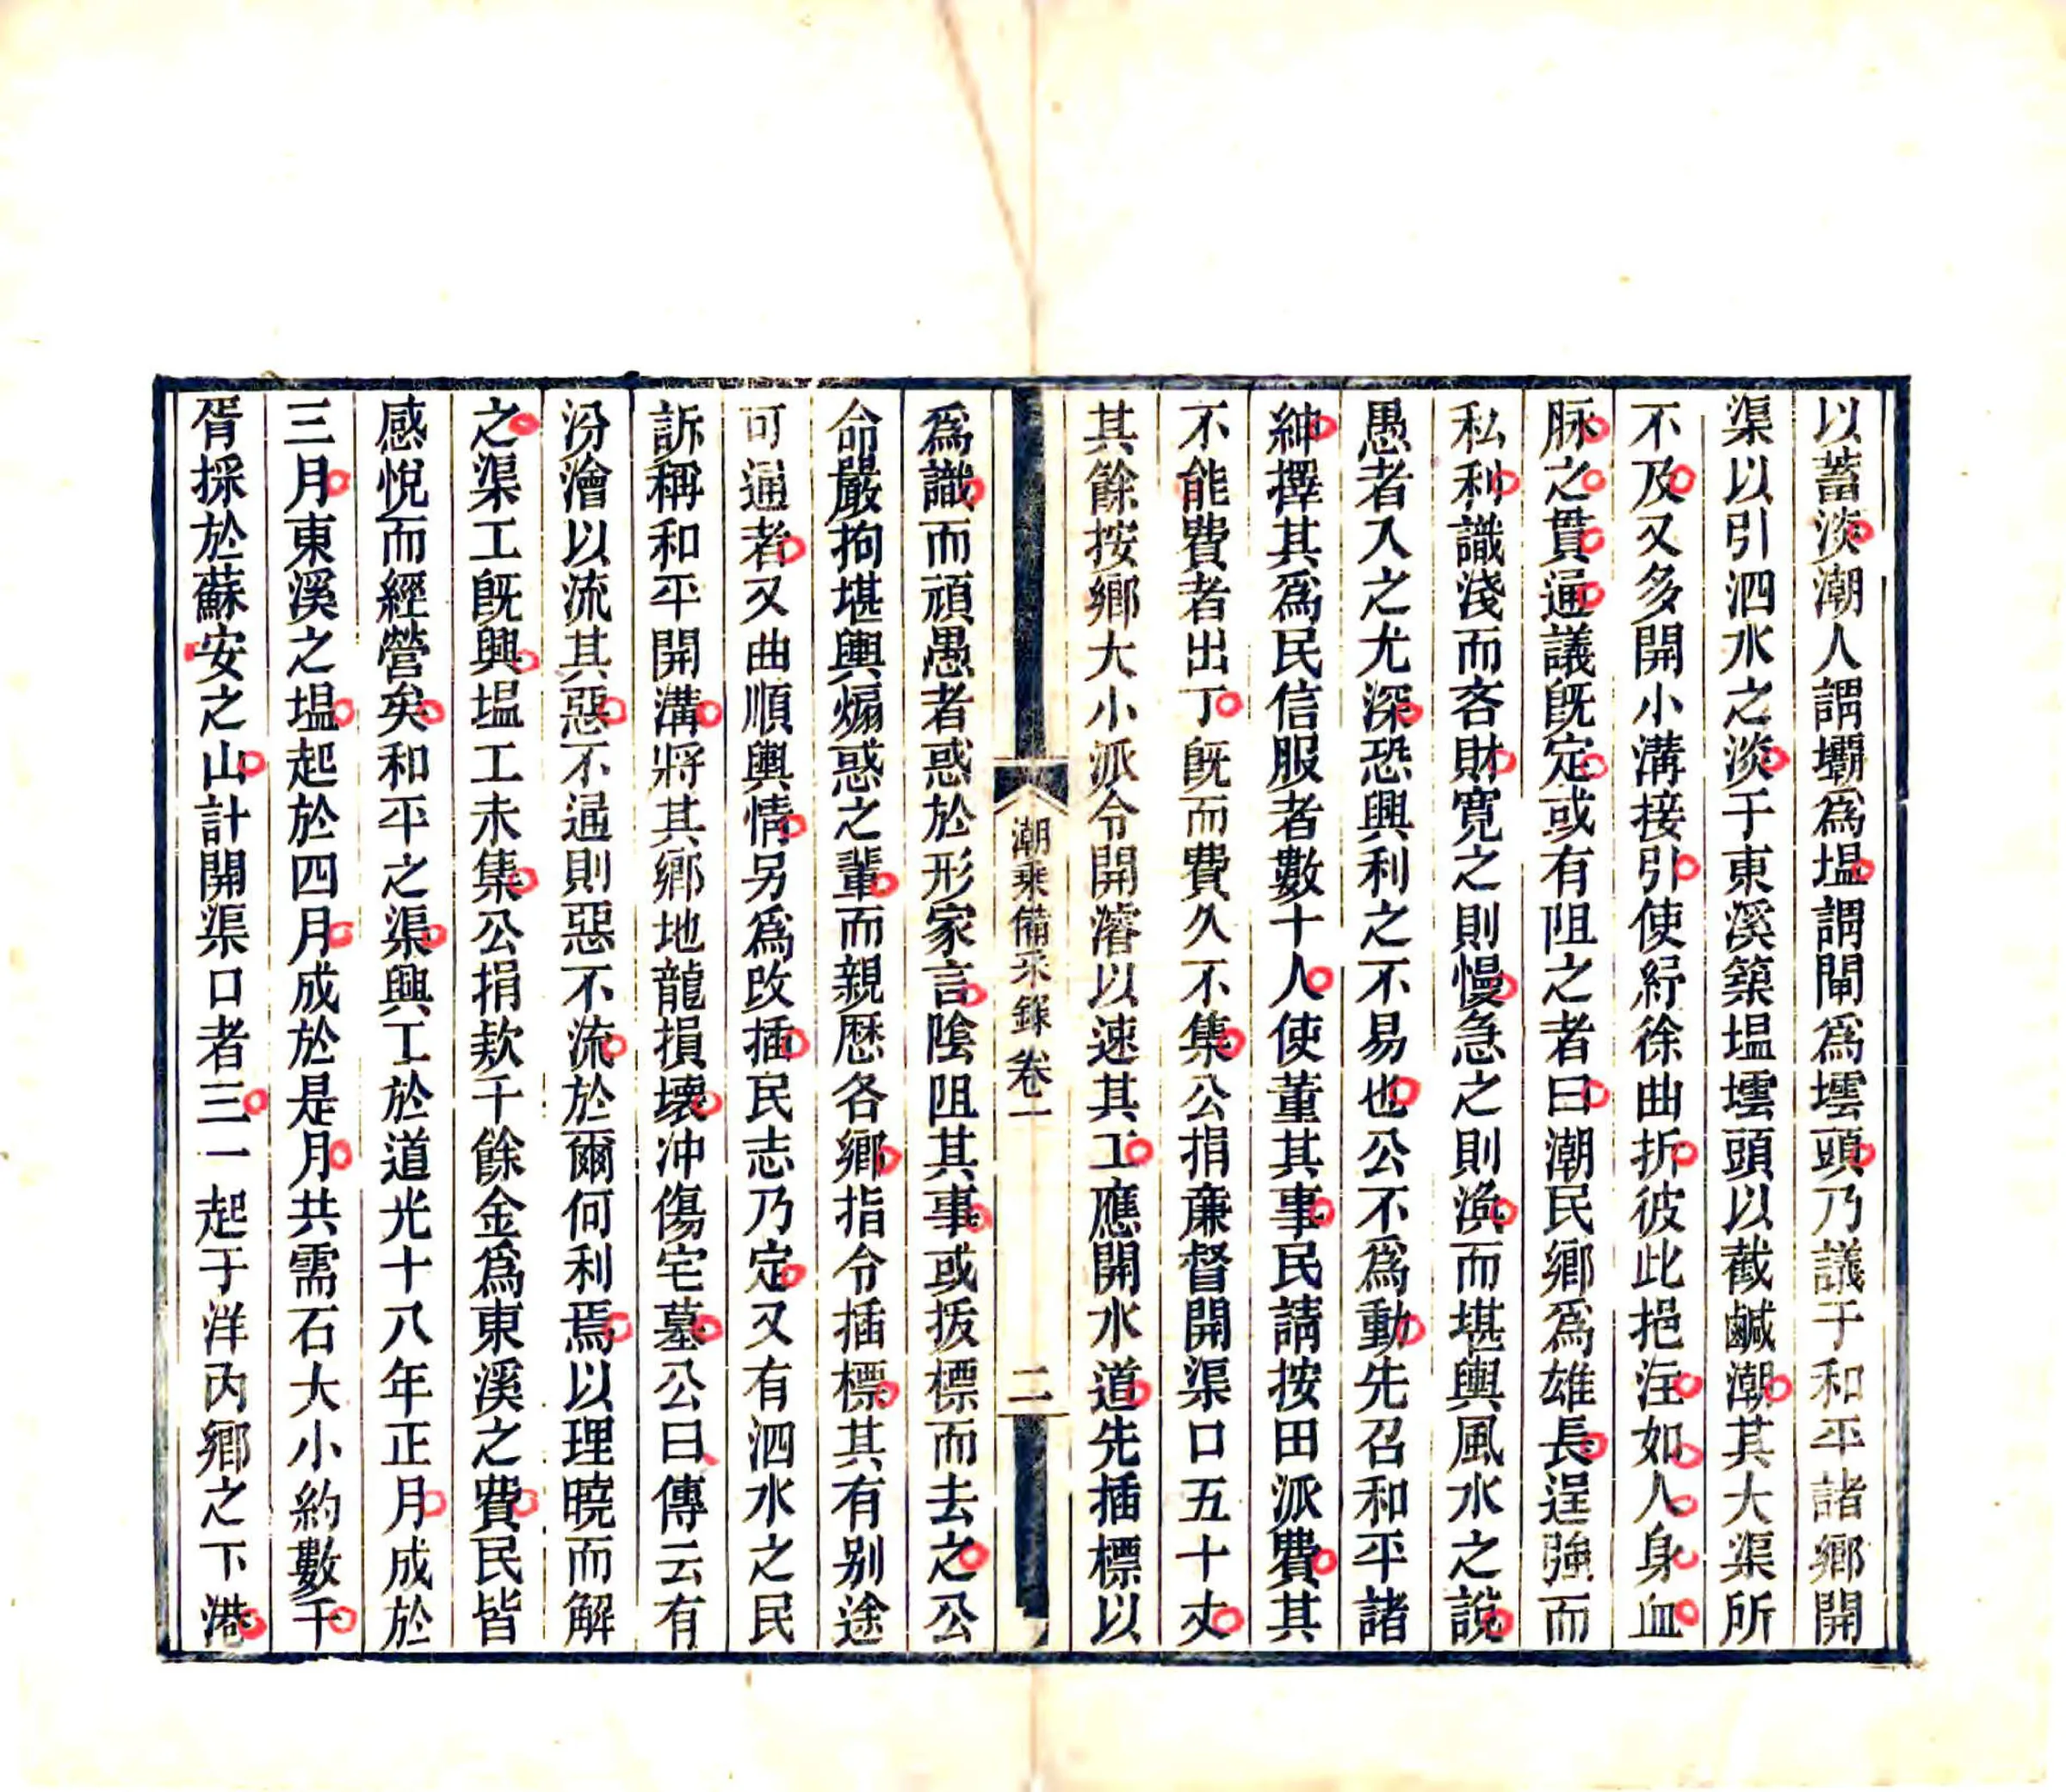 以蓄淡潮人謂壩爲塭謂閘爲壋頭乃議于和平諸鄉開
渠以引泗水之淡于東溪築塭壋頭以截鹹潮其大渠所
不及又多開小溝接引使紆徐曲折彼此挹注如人身血
脉之貫通議旣定或有阻之者曰潮民鄉爲雄長逞強而
私利識淺而吝財寛之則慢急之則渙而堪輿風水之說
愚者入之尤深恐興利之不易也公不爲動先召和平諸
紳擇其爲民信服者數十人使董其事民請按田派費其
不能費者出丁旣而費久不集公捐廉督開渠口五十丈
其餘按鄉大小派令開濬以速其工應開水道先插標以
潮乗備采録 卷一
二
爲識而頑愚者惑於形家言陰阻其事或拔標而去之公
命嚴拘堪輿煽惑之輩而親歷各鄉指令插標其有别途
可通者又曲順輿情另爲改插民志乃定又有泗水之民
訴稱和平開溝將其鄉地龍損壞冲傷宅墓公曰傳云有
汾澮以流其惡不通則惡不流於爾何利焉以理曉而解
之渠工旣興塭工未集公捐欵千餘金爲東溪之費民皆
感悅而經營矣和平之渠興工於道光十八年正月成於
三月東溪之塭起於四月成於是月共需石大小約數千
胥採於蘇安之山計開渠口者三一起于洋內鄉之下港